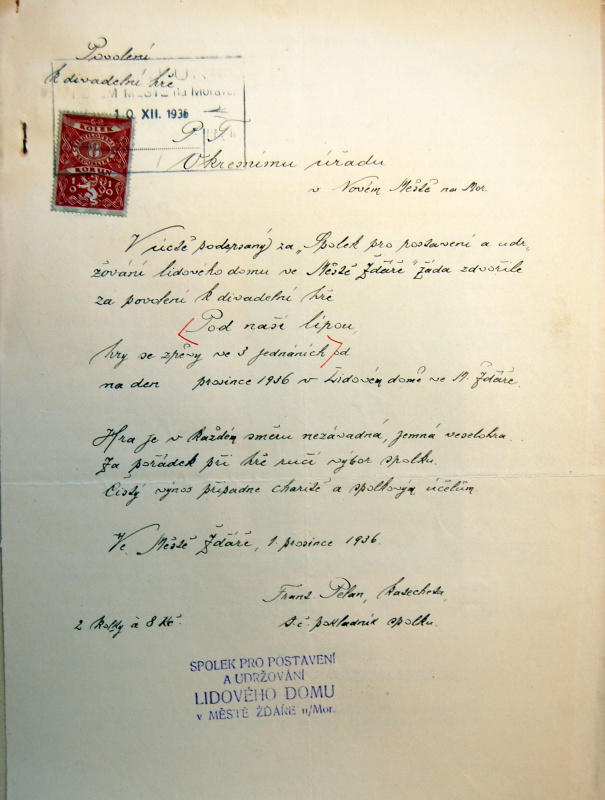 Povolení
k divadelní hře
MĚSTĚ na Moravě
10. XII. 1936
KOLEK
8
KORUN
P. T.
Okresnímu úřadu
v Novém Městě na Mor.
V úctě podepsaný za „Spolek pro postavení a udr-
žování lidového domu ve Městě Žďáře" žádá zdvořile
za povolení k divadelní hře
Pod naší lípou,
hry se zpěvy ve 3 jednáních od
na den prosince 1936 v Lidovém domě ve M. Žďáře.
Hra je v každém směru nezávadná, jemná veselohra.
Za pořádek při hře ručí výbor spolku.
Čistý výnos připadne charitě a spolkovým účelům.
Ve Městě Žďáře, 1. prosince 1936.
Frant. Pelan, katecheta,
2 kolky à 8 Kč.
t. č. pokladník spolku.
SPOLEK PRO POSTAVENÍ
A UDRŽOVÁNÍ
LIDOVÉHO DOMU
v MĚSTĚ ŽĎÁŘE n/Mor.